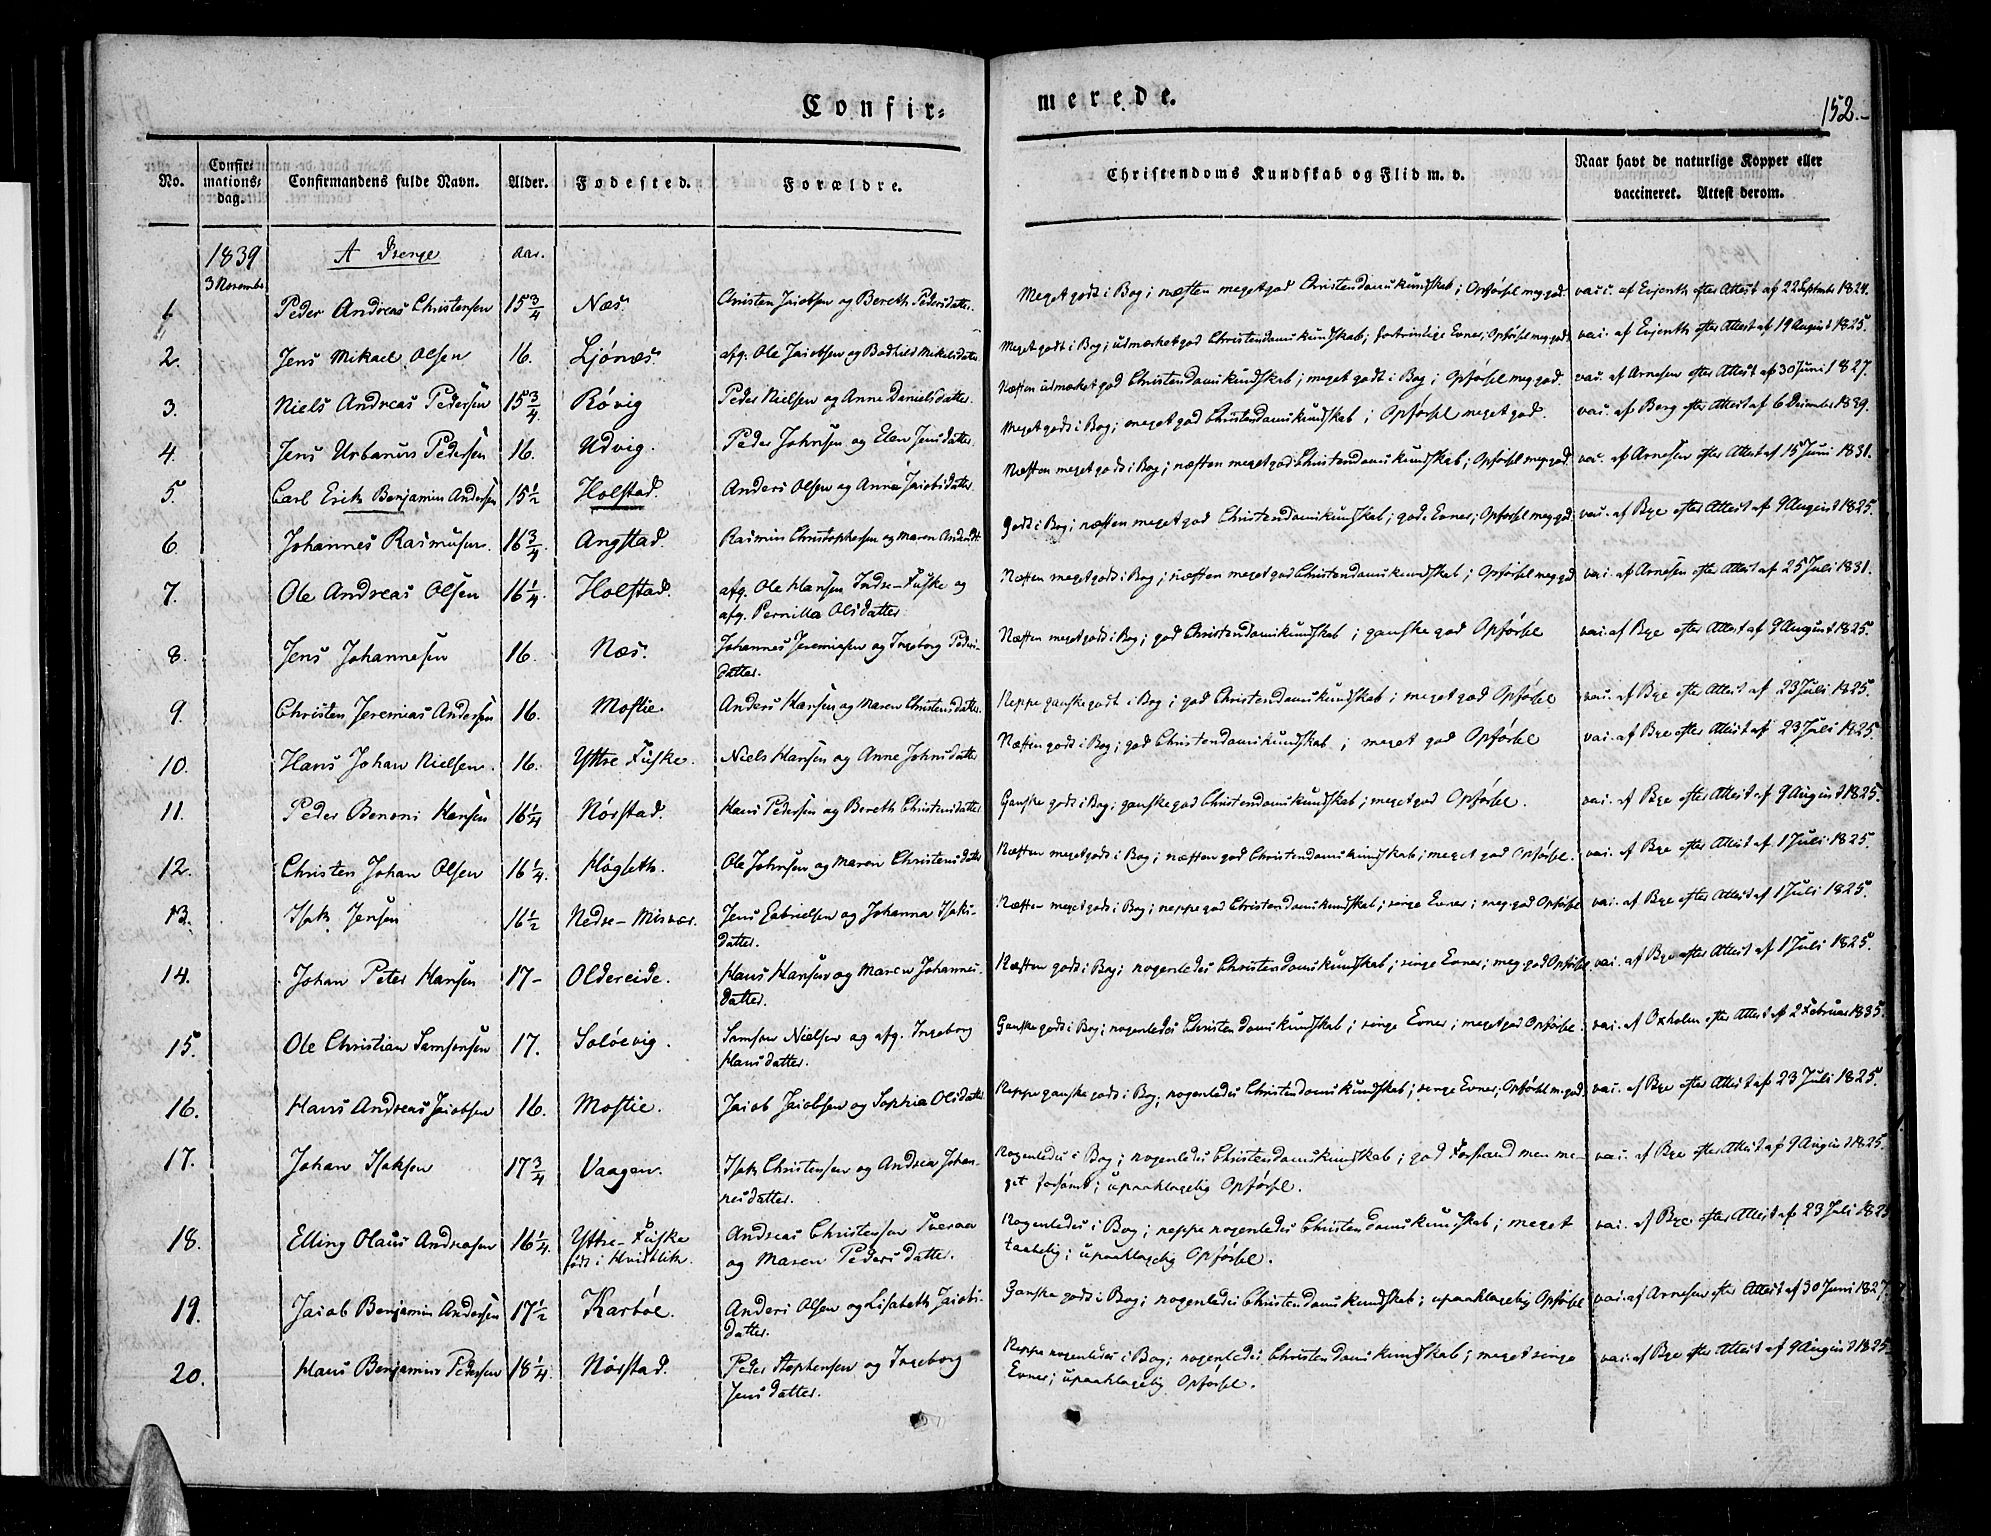 Confir=
merede.
152.
No.
Confir=
mations=
dag.
Confirmandens fulde Navn.
Alder.
Fødested.
Forældre.
Christendoms Kundskab og Flid m. v.
Naar havt de naturlige Kopper eller
vaccineret. Attest derom.
1839 A Drenge aar.
3 Novembr
1. Peder Andreas Christensen 15 3/4 Næs. Christen Jacobsen og Bereth Pedersdatter. Meget godt i Bog; næsten meget god Christendomskundskab; Opførsel meg. god. vacc. af Evjenth efter Attest af 22 Septembr 1824.
2. Jens Mikael Olsen 16. Ljónæs. afg. Ole Jacobsen og Bodhild Mikelsdatter Meget godt i Bog; udmærket god Christendomskundskab; fortrinlige Evner; Opførsel meg. god. vac. af Evjenth efter Attest af 19 August 1825.
3. Niels Andreas Pedersen 15 3/4. Róvig Peder Nielsen og Anne Danielsdatter. Næsten udmærket god Christendomskundskab; meget godt i Bog; Opførsel meg god. vac. af Arnesen efter Attest af 30 Juni 1827.
4. Jens Urbanus Pedersen 16. Udvig. Peder Johnsen og Elen Jensdatter. Meget godt i Bog; meget god Christendomskundskab; Opførsel meget god. vac. af Berg efter Attest af 6 December 1839.
5. Carl Erik Benjamin Andersen 15 1/2 Holstad. Anders Olsen og Anne Jacobsdatter. Næsten meget godt i Bog; næsten meget god Christendomskundskab; Opførsel meg. god. vac. af Arnesen efter Attest af 15 Juni 1831.
6. Johannes Rasmusen. 16 3/4. Angstad. Rasmus Christophersen og Maren Andersdt. Godt i Bog; næsten meget god Christendomskundskab; gode Evner; Opførsel meg god. vac. af Bye efter Attest af 9 August 1825.
7. Ole Andreas Olsen 16 1/4. Holstad. afg. Ole Hansen Indre-Fuske og Næsten meget godt i Bog; næsten meget god Christendomskundskab; Opførsel meg god vac. af Arnesen efter Attest af 25 Juli 1831.
afg. Pernilla Olsdatter.
8. Jens Johannesen 16. Næs. Johannes Jeremiasen og Ingeborg Peders- Næsten meget godt i Bog; god Christendomskundskab; ganske god Opførsel vac. af Bye efter Attest af 9 August 1825.
datter.
9. Christen Jeremias Andersen 16. Mostie. Anders Hansen og Maren Christensdatter. Neppe ganske godt i Bog; god Christendomskundskab; meget god Opførsel vac. af Bye efter Attest af 23 Juli 1825.
10. Hans Johan Nielsen. 16. Yttre Fuske. Niels Hansen og Anne Johnsdatter Næsten godt i Bog; god Christendomskundskab; meget god Opførsel vac. af Bye efter Attest af 23 Juli 1825.
11. Peder Benoni Hansen 16 1/4 Nórstad. Hans Pedersen og Bereth Christensdatter Ganske godt i Bog; ganske god Christendomskundskab; meget god Opførsel. vac. af Bye efter Attest af 9 August 1825.
12. Christen Johan Olsen 16 1/4. Høgleth. Ole Johnsen og Maren Christensdatter Næsten meget godt i Bog; næsten god Christendomskundskab; meget god Opførsel. vac. af Bye efter Attest af 1 Juli 1825.
13. Isak Jensen 16 1/2 Nedre-Misvær. Jens Gabrielsen og Johanna Isaks- Næsten meget godt i Bog; neppe god Christendomskundskab; ringe Evner; meg. god Opførsel vac. af Bye efter Attest af 1 Juli 1825.
datter.
14. Johan Peter Hansen 17- Oldereide. Hans Hansen og Maren Johannes- Næsten godt i Bog; nogenledes Christendomskundskab; ringe Evner; meg god Opførsel vac. af Bye efter Attest af 1 Juli 1825.
datter.
15. Ole Christian Samsonsen 17. Solóevig. Samson Nielsen og afg. Ingeborg Ganske godt i Bog; nogenledes Christendomskundskab; ringe Evner; meget god Opførsel. vac. af Oxholm efter Attest af 2 Februar 1835.
Hansdatter.
16. Hans Andreas Jacobsen 16. Mostie. Jacob Jacobsen og Sophia Olsdatter Neppe ganske godt i Bog; nogenledes Christendomskundskab; ringe Evner; Opførsel m. god. vac. af Bye efter Attest af 23 Juli 1825.
17. Johan Isaksen 17 3/4 Vaagen. Isak Christensen og Andrea Johan- Nogenledes i Bog; nogenledes Christendomskundskab; god Forstand men me- vac. af Bye efter Attest af 9 August 1825.
nesdatter. get forsømt; upaaklagelig Opførsel.
18. Elling Olaus Andreasen 16 1/4. Yttre-Fuske Andreas Christensen Tveraa Nogenledes i Bog; neppe nogenledes Christendomskundskab; meget vac. af Bye efter Attest af 23 Juli 1825
født i Hvidblik. og Maren Pedersdatter. taabelig; upaaklagelig Opførsel.
19. Jacob Benjamin Andersen 17 1/2 Karbøl. Anders Olsen og Lisabeth Jacobs- Ganske godt i Bog; nogenledes Christendomskundskab; upaaklagelig Opførsel vac. af Arnesen efter Attest af 30 Juni 1827.
datter.
20. Hans Benjamin Pedersen 18 1/4. Nórstad. Peder Stephensen og Ingeborg Neppe nogenledes i Bog; nogenledes Christendomskundskab; meget ringe vac. af Bye efter Attest af 9 August 1825
Jensdatter. Evner; upaaklagelig Opførsel.